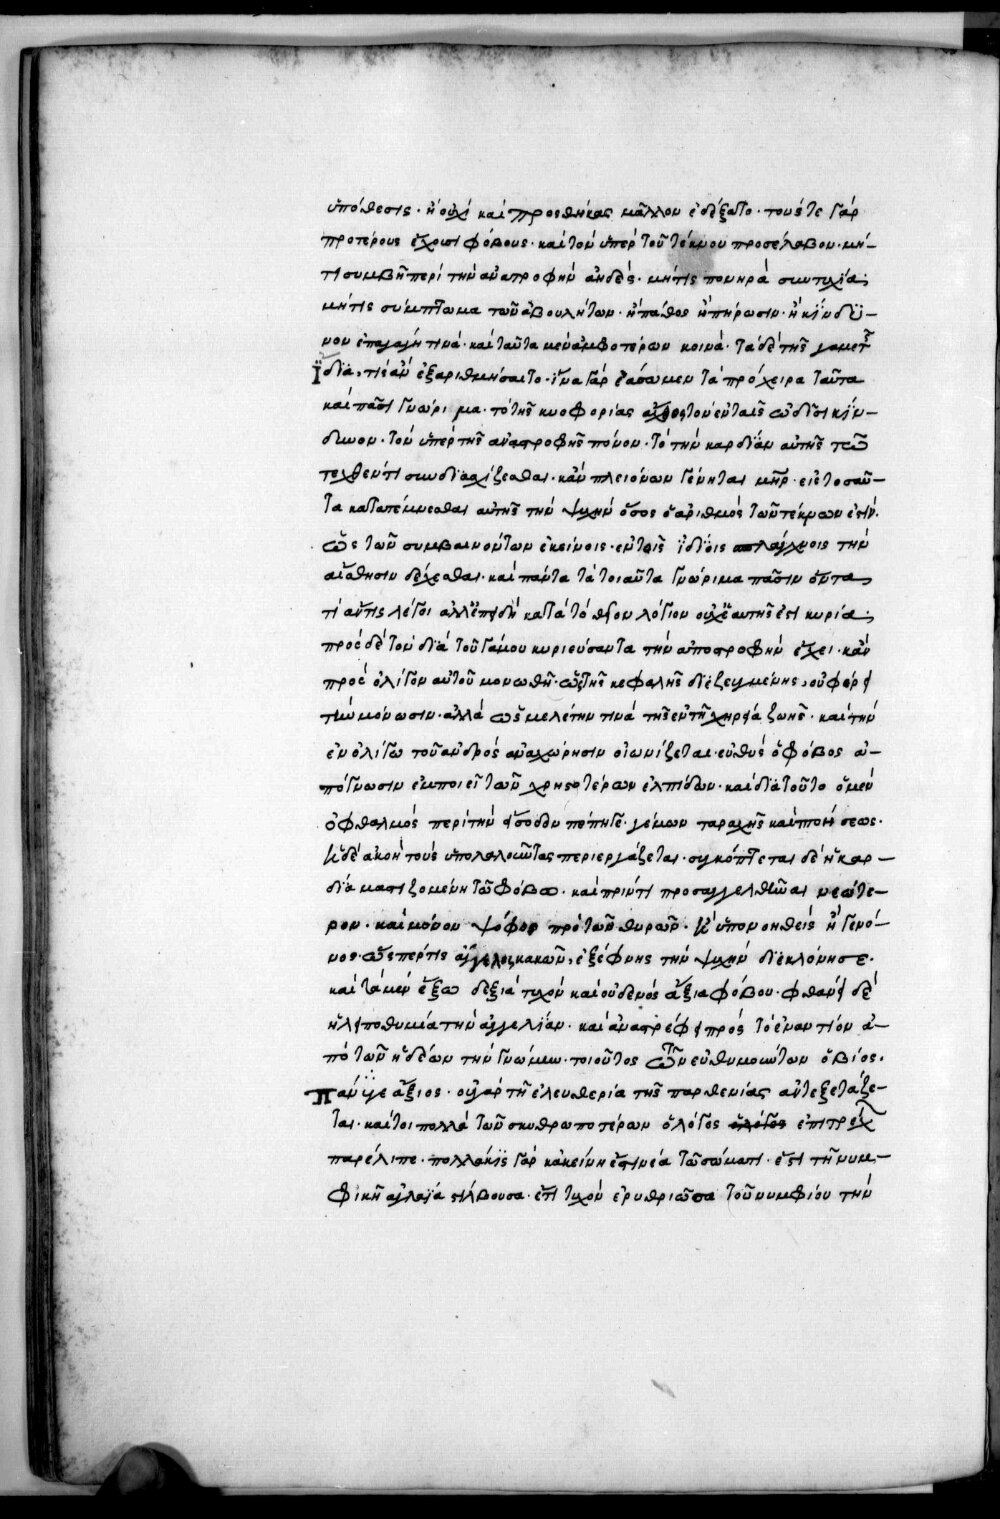 ὑπόθεσις· ἢ οὐχὶ καὶ προσθήκας μᾶλλον ἐδέξατο· τούς τε γὰρ
προτέρους ἔχουσι φόβους· καὶ τὸν ὑπὲρ τοῦ τέκνου προσέλαβον· μή-
τι συμβῆ περὶ τὴν ἀνατροφὴν ἀηδές· μή τις πονηρὰ συντυχία·
μή τις σύμπτωμα τῶν ἀβουλήτων· ἢ πάθος ἢ πήρωσιν· ἢ κίνδυ-
νον ἐπαγάγη τινά· καὶ ταῦτα μὲν ἀμφοτέρων κοινά· τὰ δὲ τῆς γαμετῆς
ἴδια, τίς ἂν ἐξαριθμήσαιτο· ἵνα γὰρ ἐάσωμεν τὰ πρόχειρα ταῦτα
καὶ πᾶσι γνώριμα· τὸ τῆς κυοφορίας ἄχθος τὸν ἐν ταῖς ὠδῖσι κίν-
δυνον· τὸν ὑπὲρ τῆς ἀνατροφῆς πόνον· τὸ τὴν καρδίαν αὐτῆς τῶ
τεχθέντι συνδιασχίζεσθαι· κἂν πλειόνων γένηται μήτηρ· εἰς τοσαῦ-
τα κατατέμνεσθαι αὐτῆς τὴν ψυχὴν ὅσος ὁ ἀριθμὸς τῶν τέκνων ἐστίν·
ὡς τῶν συμβαινόντων ἐκείνοις· ἐν τοῖς ἰδίοις σπλάγχνοις τὴν
αἴσθησιν δέχεσθαι· καὶ πάντα τὰ τοιαῦτα γνώριμα πᾶσιν ὄντα
τί ἄν τις λέγοι ἀλλ' ἐπειδὴ κατὰ τὸ θεῖον λόγιον οὐχ ἑαυτῆς ἐστι κυρία·
πρὸς δὲ τὸν διὰ τοῦ γάμου κυριεύσαντα τὴν ἀποστροφὴν ἔχει· κἂν
πρὸς ὀλίγον αὐτοῦ μονωθῆ· ὡς τῆς κεφαλῆς διεζευγμένης, οὐ φέρει
τὴν μόνωσιν· ἀλλὰ ὡς μελέτην τινὰ τῆς ἐν τῆ χηρεία ζωῆς· καὶ τὴν
ἐν ὀλίγω τοῦ ἀνδρὸς ἀναχώρησιν οἰωνίζεται· εὐθὺς ὁ φόβος ἀ-
πόγνωσιν ἐμποιεῖ τῶν χρηστοτέρων ἐλπίδων· καὶ διὰ τοῦτο ὁ μὲν
ὀφθαλμὸς περὶ τὴν εἴσοδον πέπηγε· γέμων ταραχῆς καὶ πτοήσεως·
ἡ δὲ ἀκοὴ τοὺς ὑπολαλοῦντας περιεργάζεται· συγκόπτεται δὲ ἡ καρ-
δία μαστιζομένη τῶ φόβω· καὶ πρίν τι προσαγγελθῆναι νεώτε-
ρον· καὶ μόνον ψόφος πρὸ τῶν θυρῶν· ἢ ὑπονοηθεὶς ἢ γενό-
μενος· ὥσπερ τις ἄγγελος κακῶν, ἐξέφνης τὴν ψυχὴν διεκλόνησε·
καὶ τὰ μὲν ἔξω δεξιὰ τυχὸν καὶ οὐδενὸς ἄξια φόβου· φθάνει δὲ
ἡ λειποθυμία τὴν ἀγγελίαν· καὶ ἀναστρέφει πρὸς τὸ ἐναντίον ἀ-
πὸ τῶν ἡδέων τὴν γνώμην· τοιοῦτος τῶν εὐθυμούντων ὁ βίος·
πάνυ γε ἄξιος· οὐ γὰρ τῆ ἐλευθερία τῆς παρθενίας ἀντεξετάζε-
ται· καίτοι πολλὰ τῶν σκυθρωποτέρων ὁ λόγος ὁ λόγος ἐπιτρέχων
παρέλιπε· πολλάκις γὰρ κἀκείνη ἔτι νέα τῶ σώματι· ἔτι τῆ νυμ-
φικῆ ἀγλαΐα στίλβουσα· ἔτι τυχὸν ἐρυθριῶσα τοῦ νυμφίου τὴν